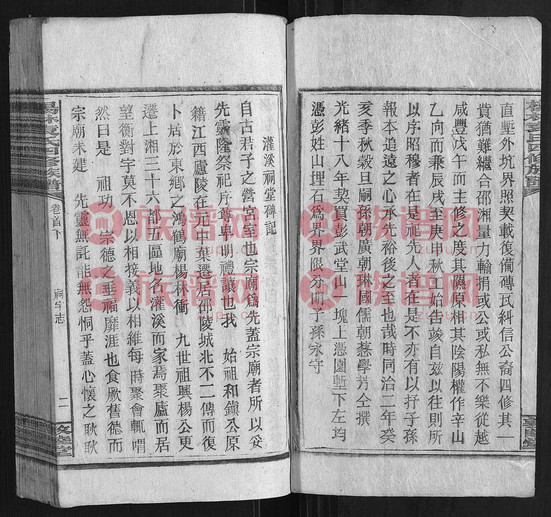 直壆外坑界照契載復備磚瓦糾信公裔四修其一
賁猶難繼合邵湘量力輸捐或公或私無不樂從越
咸豐戊午而主修之度其
原相其陰陽權作辛山
乙向而兼辰戌至庚申秋始告竣自茲以往則
以序昭穆者在是祀先人者在是不亦有以抒子孫
報本追遠之心承先裕後之
也哉時同治二年癸
亥季秋穀旦嗣孫朝廣朝琳國儒朝
學芳仝撰
光緒十八年契買彭武堂山一塊上憑圍塹下左均
憑彭姓山埋石爲界界限分明子孫永守
灌溪祠堂碑記
自古君子之營宮室也宗廟爲先蓋宗廟者所以妥
先靈隆祭祀序尊卑明禮讓也我 始祖和鎭公原
籍江西廬陵在元中葉遷居邵陵城北不二傳而復
卜居於東鄉之鴻鶴廟楊林衝 九世祖興楊公更
遷上湘三十六都四區地名灌溪而家焉聚廬而居
望衡對宇莫不恩以相接義以相維每 時聚會輒喟
而言曰是 祖功 宗德之垂福靡涯也食厥舊德而
宗廟未建 先靈無託能無怨恫乎蓋心懷之耿耿
楊林袁氏四修族譜
卷首下
祠宇志
二
族谱网